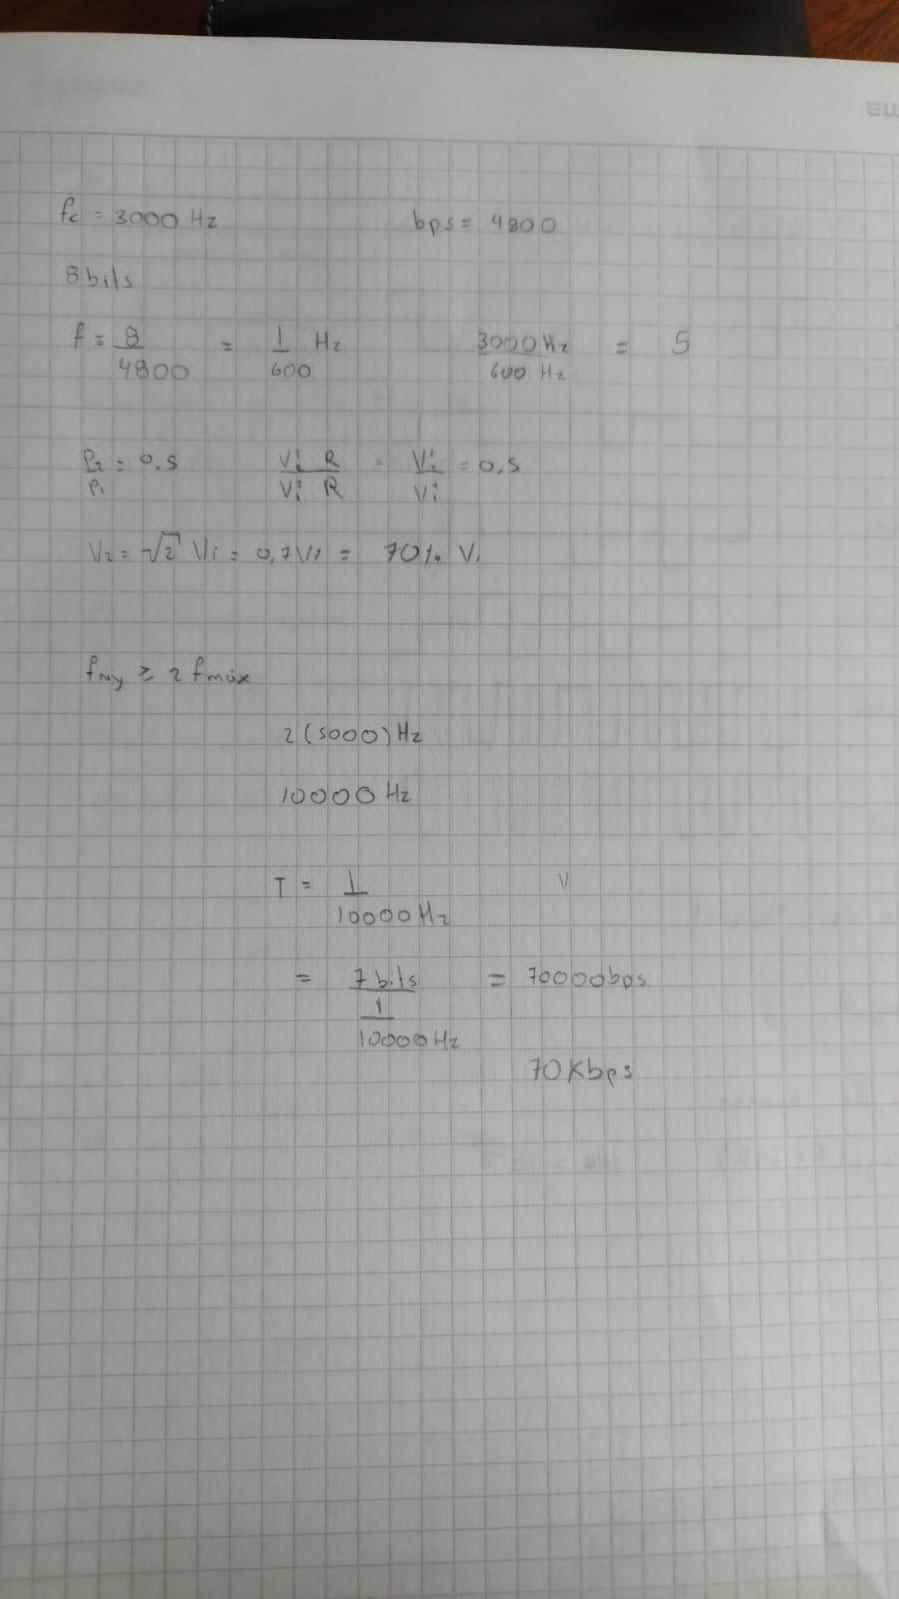 fc = 3000 Hz bps = 4800
8 bits
f = 8/4800 = 1/600 Hz 3000 Hz/600 Hz = 5
P2/P1 = 0,5 V₂² R/V₁² R = V₂²/V₁² = 0,5
V2 = √2 V1 = 0,7V1 = 70% V1
fNy ≥ 2 fmáx
2(5000) Hz
10000 Hz
T = 1/10000 Hz V
= 7 bits/(1/10000 Hz) = 70000bps
70Kbps